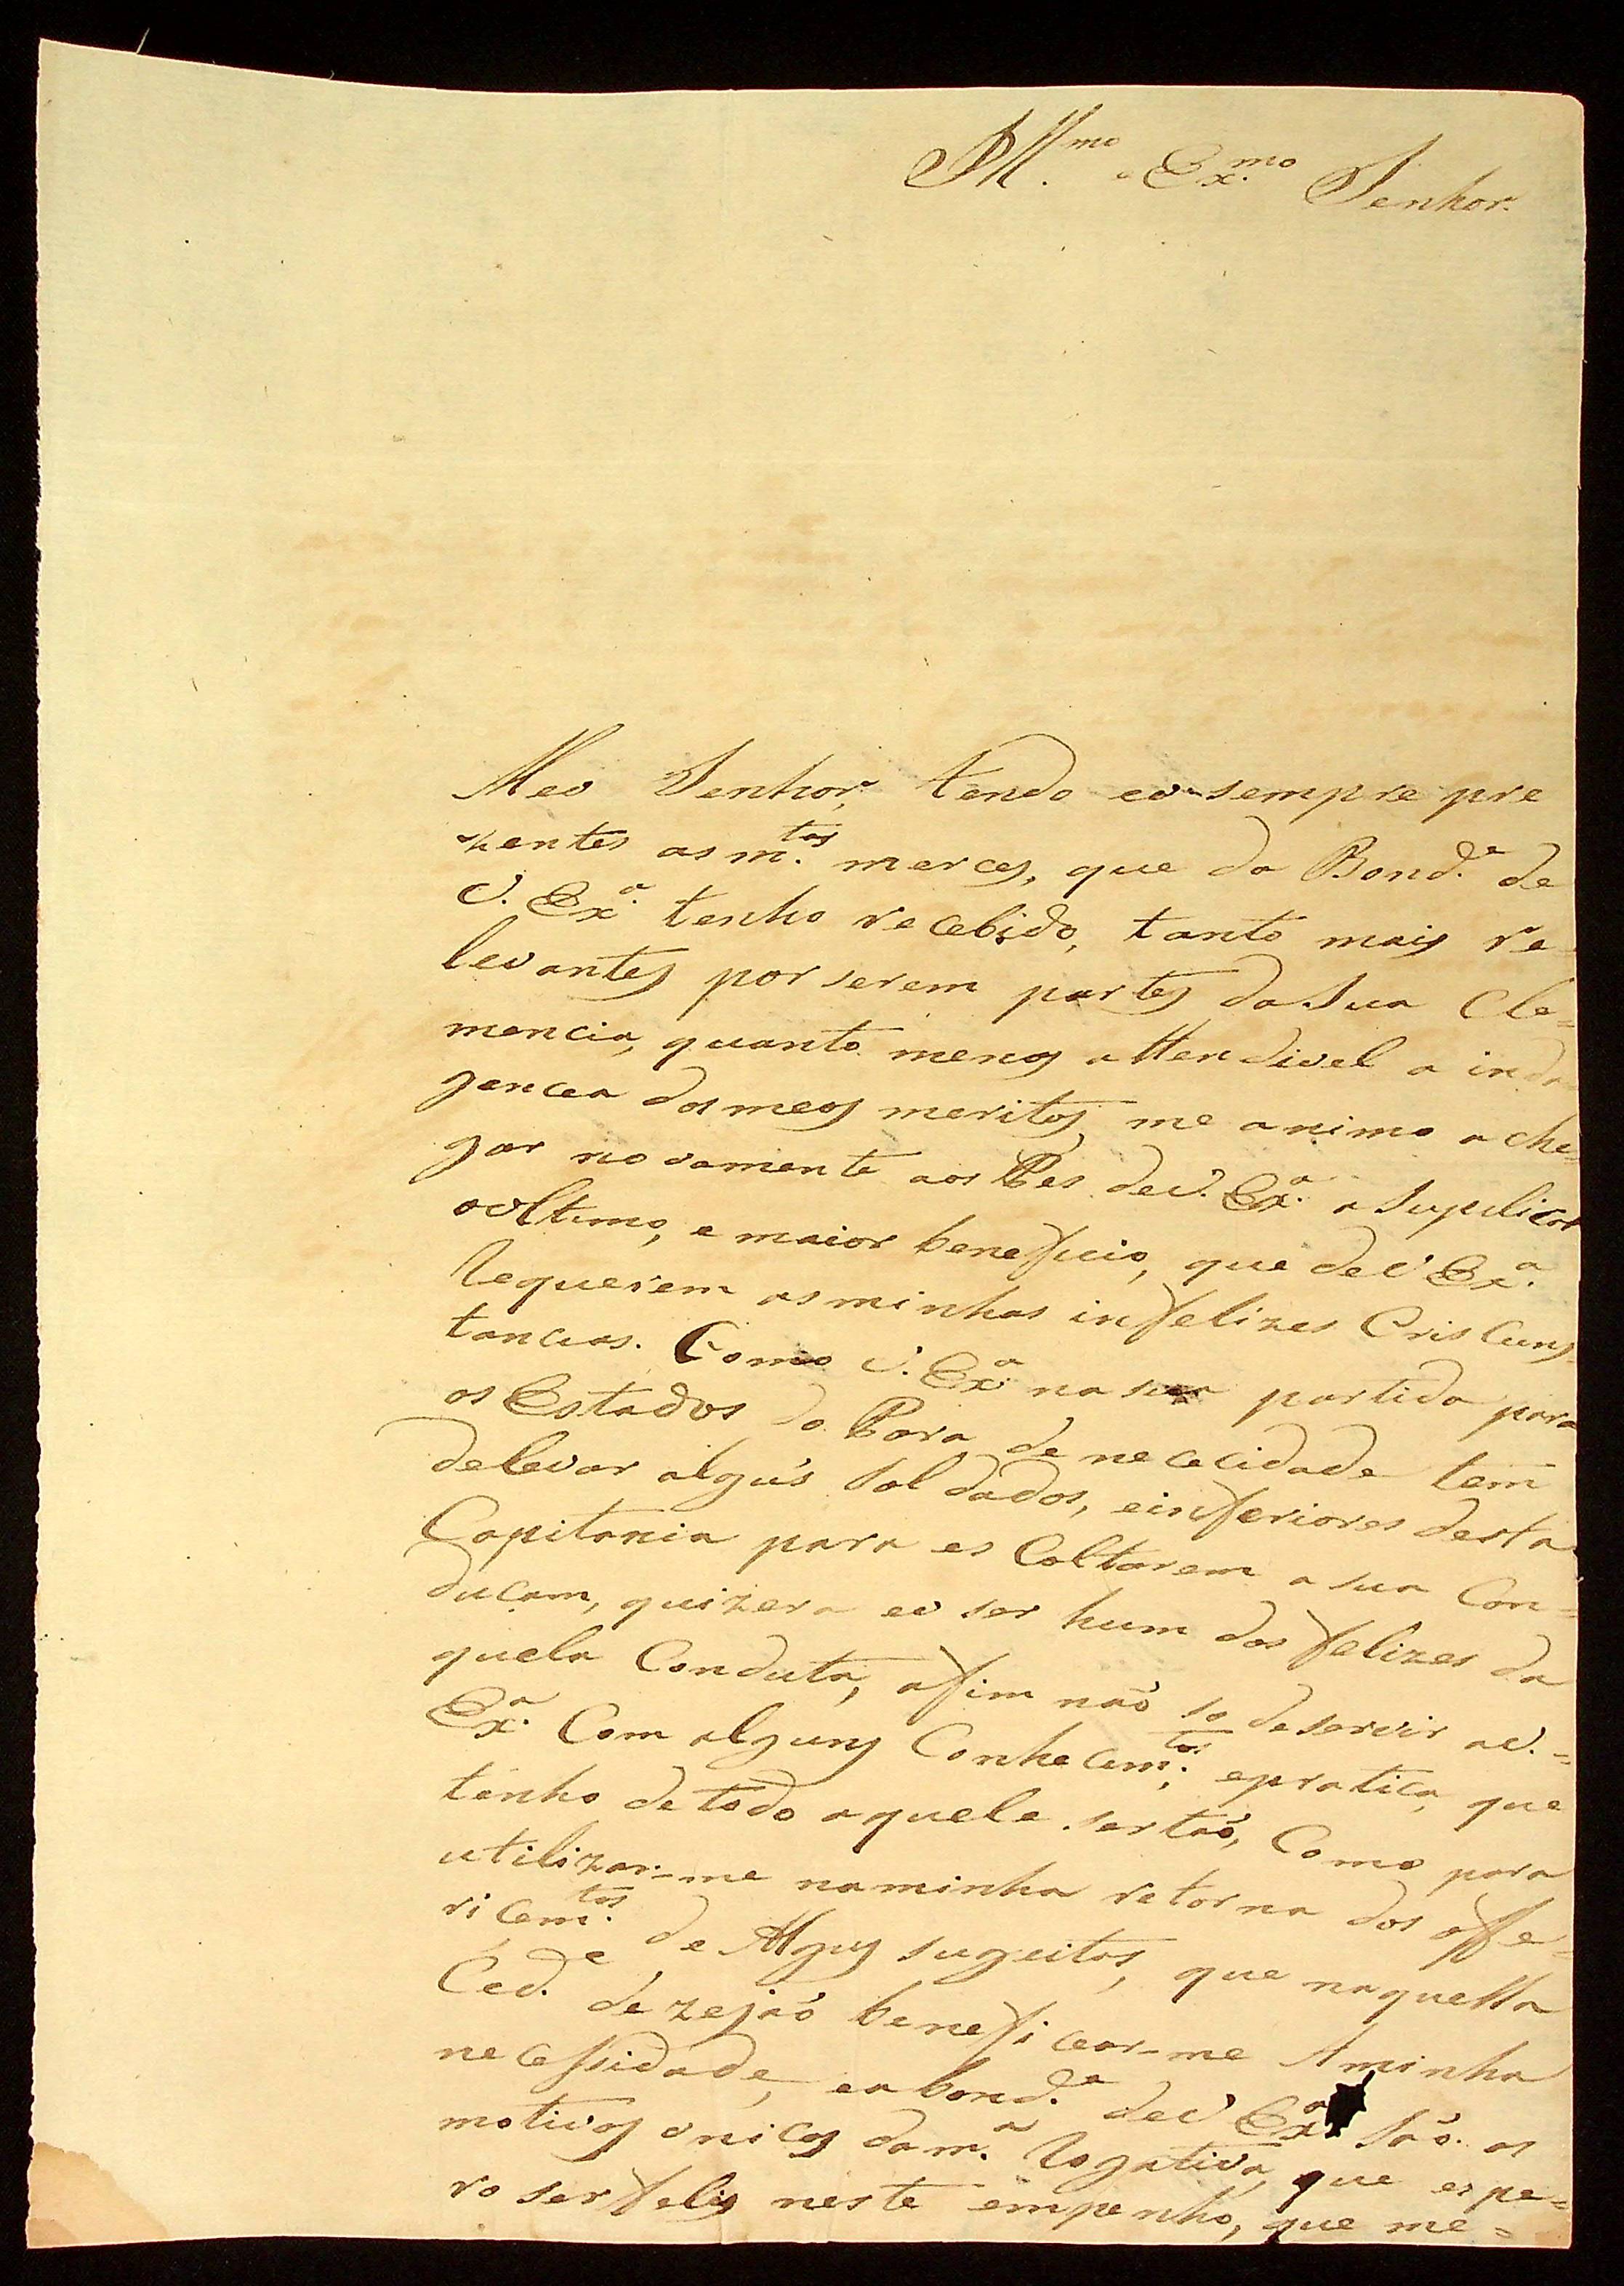 Ill.mo e Ex.mo Senhor.
Meo Senhor, tendo eu sempre pre
zentes as m.tas merces, que da Bond.e de
V. Ex.a tenho recebido, tanto mais re=
levantes por serem partes da Sua Cle=
mencia, quanto menos attendivel a indi
gencea dos meos meritos, me animo a che=
gar novamente aos Pes de V. Ex.a a Suplicar
o ultimo, e maior beneficio, que de V Ex.a
Requerem as minhas infelizes Criscuns=
tancias. Como V. Ex.a na sua partida para
os Estados do Para de nececidade tem
de levar algũs Soldados, e inferiores desta
Capitania para escoltarem a sua Con=
ducam, quizera eu ser hum dos felizes da
quela Conduta, afim não so de servir a V.=
Ex.a Com alguns Conhecim.tos, e pratica, que
tenho de todo aquele sertaõ, Como para
utilizar-me na minha retorna dos offe=
ricem.tos de Alguns sugeitos, que naquella
Cid.e dezejaõ beneficear-me A minha
necessidade, e a bond.e de V Ex.a Saõ. os
motivos unicos da m.a Rogativa, que espe=
ro ser felis neste empenho, que me=